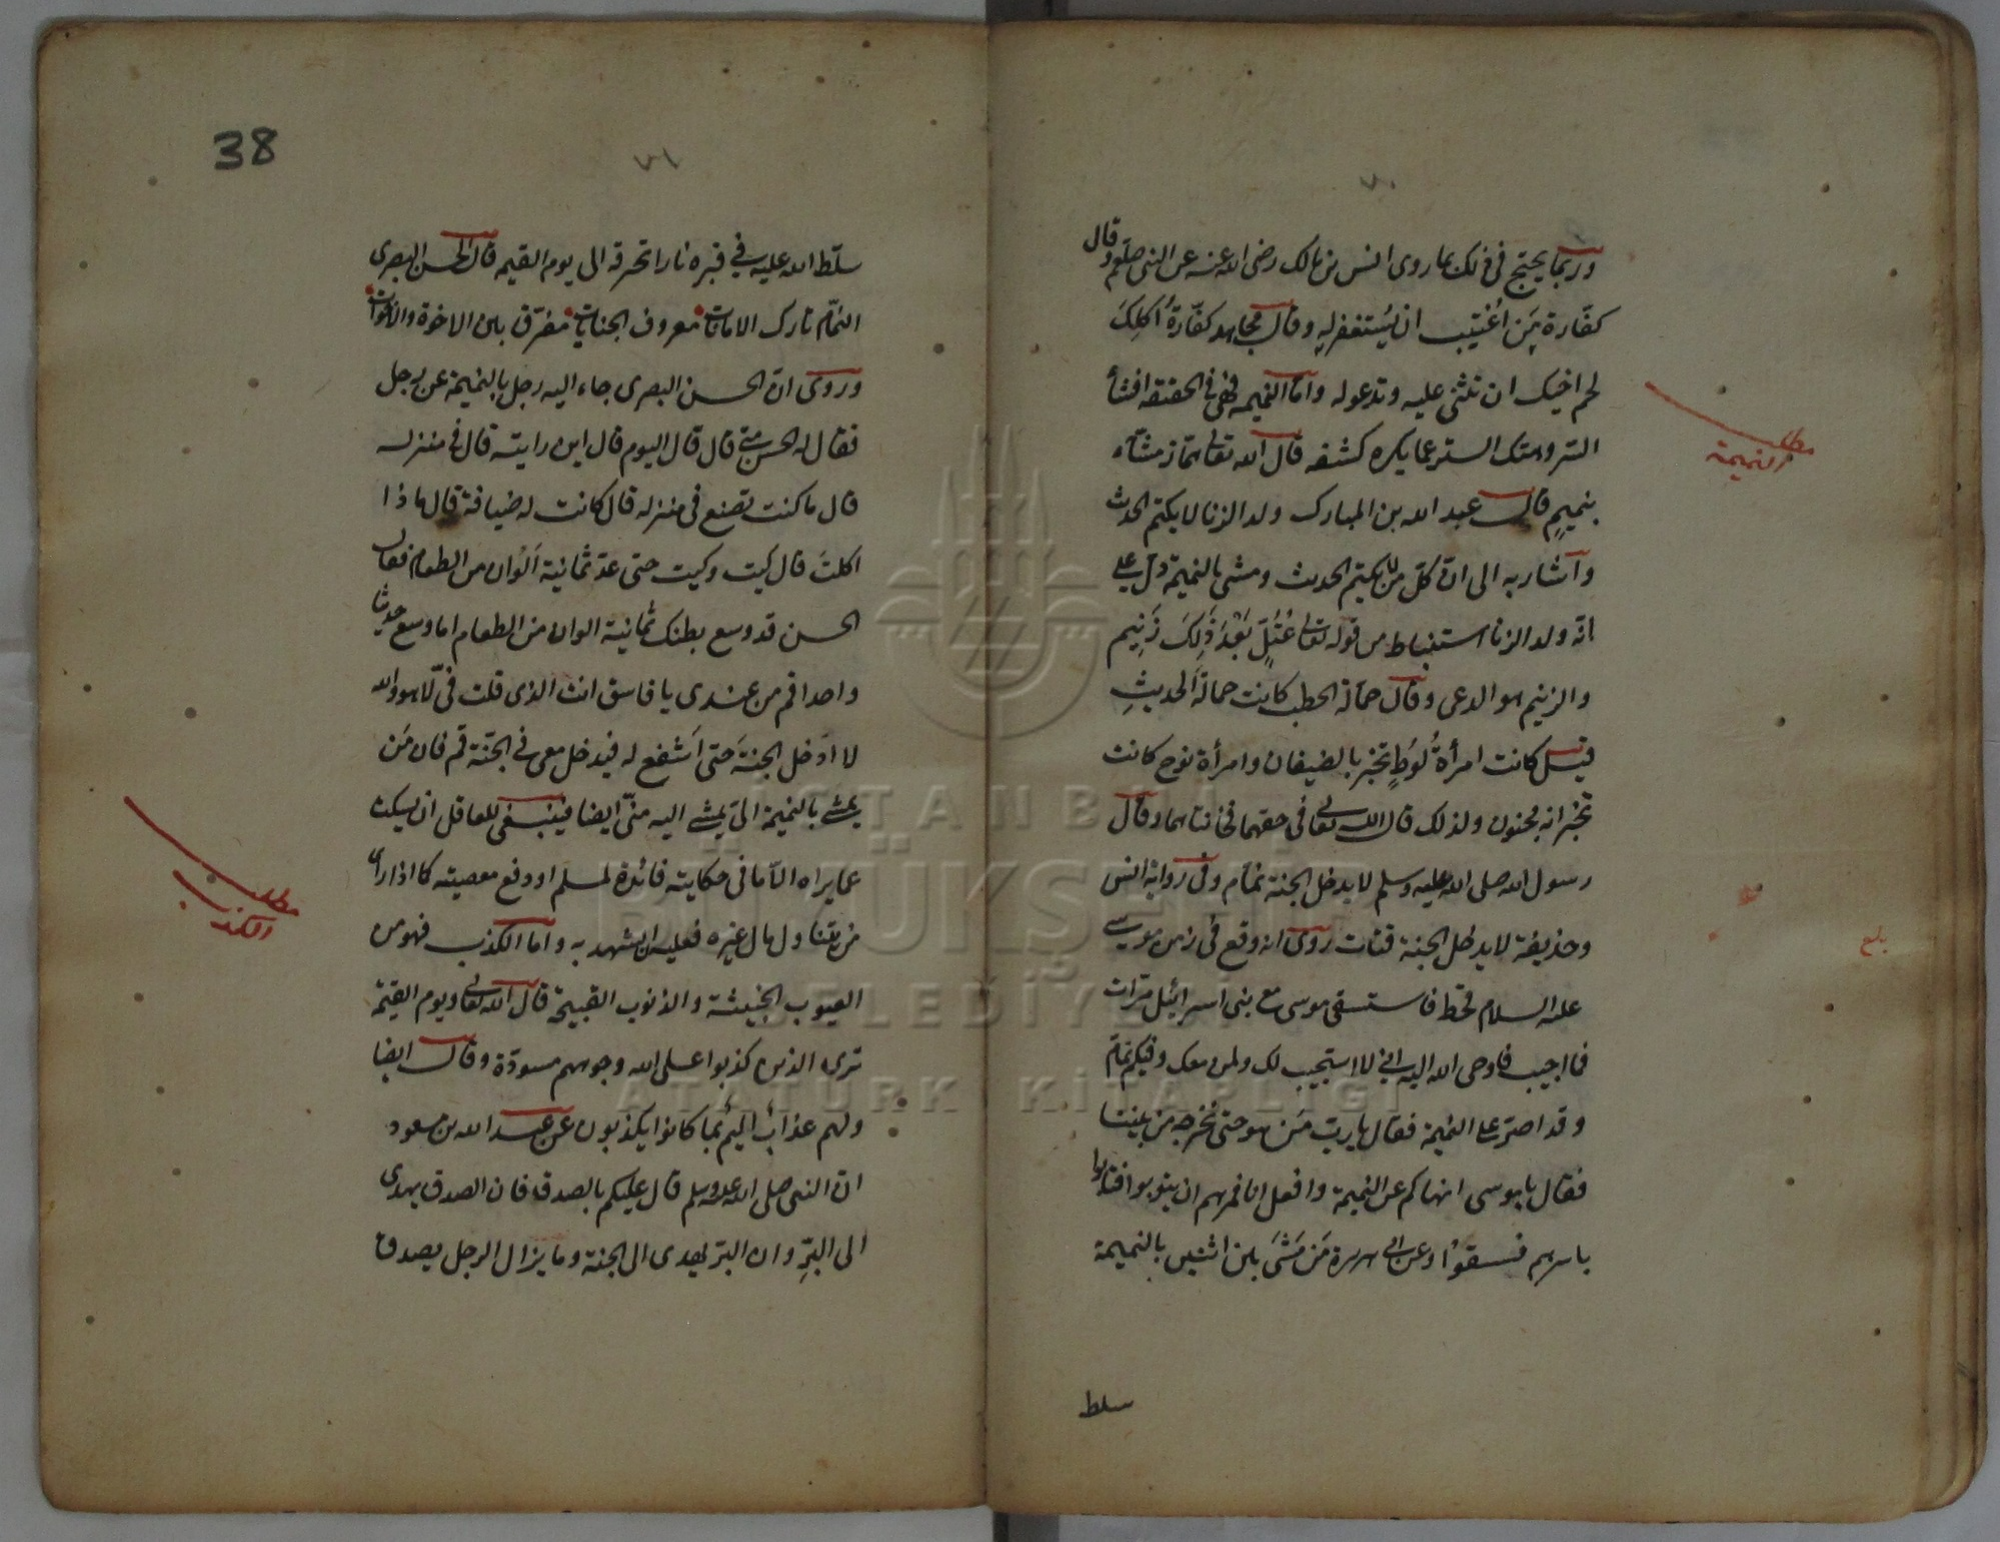 ٧٠
وربما يحتج فى ذلك بما روى انس بن مالك رضى الله عنه عن النبى صلعم وقال
كفّارة مَن اُغتيب ان يُستغفر له وقال مجاهد كفّارةُ اَكلِكَ
لحم اخيك ان تثنى عليه وتدعوله واما النميمه فهى فى الحقيقه افشأ
السّر وهتك الستر عما يكره كشفه قال الله تعالى همّاز مشّاء
بنميمٍ قال عبد الله بن المبارك ولد الزنا لا يكتم الحديث
وآشار به الى انّ كلّ من لا يكتم الحديث ومشى بالنميمة دلّ على
انّه ولد الزنا استنباط من قوله تعالى عُتُلٍّ بَعْدَ ذَٰلِكَ زَنِيم
والزنيم هو الدعى وقال حمالة الحطب كانت حمالة الحديثِ
قيل كانت امرأةُ لُوطٍ تخبر بالضيفان وامرأة نوح كانت
تخبر انه مجنون ولذلك قال الله تعالى فى حقهما فخانتاهما وقال
رسول الله صلى الله عليه وسلم لا يدخل الجنة نمّام وفى رواية انس
وحذيفة لا يدخل الجنة قتات روى انه وقع فى زمن موسى
عليه السلام قحط فاستسقى موسى مع بنى اسرائيل مرّات
فما اجيب فاوحى الله اليه انى لا استجيب لك ولمن معك وفيكم نمّام
وقد اصر على النميمة فقال يا ربّ مَن هو حتى نخرجه من بيننا
فقال يا موسى انهاكم عن النميمة وافعل انا فمرهم ان يتوبوا فتابوا
باسرهم فسقوْا وعن ابى هريرة مَن مَشَى بين اثنين بالنميمة
سلط
مطلب
النميمة
بلغ
٧١
38
سلّط الله عليه فى قبره نارا تحرقه الى يوم القيمه قال الحسن البصرى
النمّام تارك الامانات معروف الجنايات مفرّق بين الاخوة والاخوات
وروى انّ الحسن البصرى جاء اليه رجل بالنميمة عن رجل
فقال له الحسن متى قال قال اليوم قال اين رايته قال فى منزله
قال ما كنت تصنع فى منزله قال كانت له ضيافة قال ماذا
اكلتَ قال كيت وكيت حتى عدّ ثمانية اَلوان من الطعام فقال
الحسن قد وسع بطنك ثمانية الوان من الطعام اما وسع حديثا
واحدا قم من عندى يا فاسق انت الذى قلت فىّ لا هو والله
لا ادخل الجنةَ حتى اَشفع له فيدخل معى فى الجنّة قم فان مَن
يمشى بالنميمة الىّ يمشى اليه منّى ايضا فينبغى للعاقل ان يسكت
عما يراه الّا ما فى حكايته فائدة لمسلم او دفع معصيته كما اذا راى
من يتناول مال غيره فعليه ان يشهد به واما الكذب فهو من
العيوب الخبيثة والذنوب القبيحة قال الله تعالى ويوم القيمة
ترى الذين كذبوا على الله وجوههم مسودّة وقال ايضا
ولهم عذابٌ اليمٌ بما كانوا يكذبون عن عبد الله بن مسعود
ان النبى صلى الله عليه وسلم قال عليكم بالصدق فان الصدق يهدى
الى البِرِّ وان البر يهدى الى الجنة وما يزال الرجل يصدق
مطلب
الكذب
İSTANBUL
BÜYÜKŞEHİR
BELEDİYESİ
ATATÜRK KİTAPLIĞI